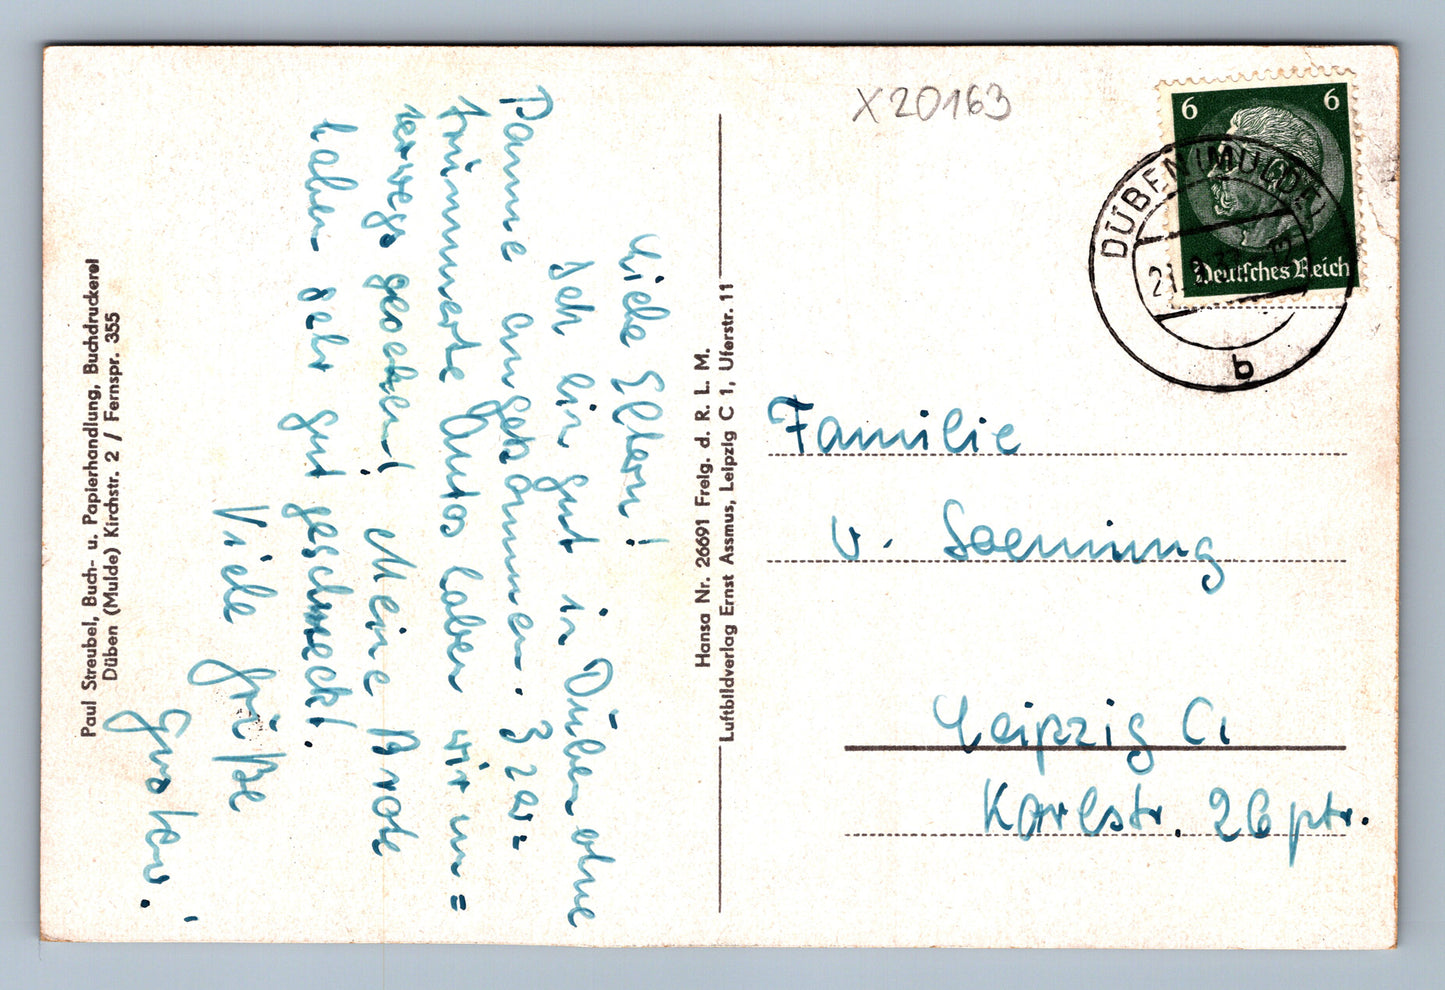 X20163
6 6
Deutsches Reich
DÜBEN (MULDE)
b
Liebe Eltern!
Ich bin gut in Düben ohne
Panne angekommen. 3 zer-
trümmerte Autos haben wir un=
terwegs gesehen! Meine Brote
haben sehr gut geschmeckt.
Viele Grüße
Familie
v.
Leipzig C1
Karlstr. 26 ptr.
Hansa Nr. 26691 Freig. d. R. L. M.
Luftbildverlag Ernst Assmus, Leipzig C 1, Uferstr. 11
Paul Streubel, Buch- u. Papierhandlung, Buchdruckerei
Düben (Mulde) Kirchstr. 2 / Fernspr. 355